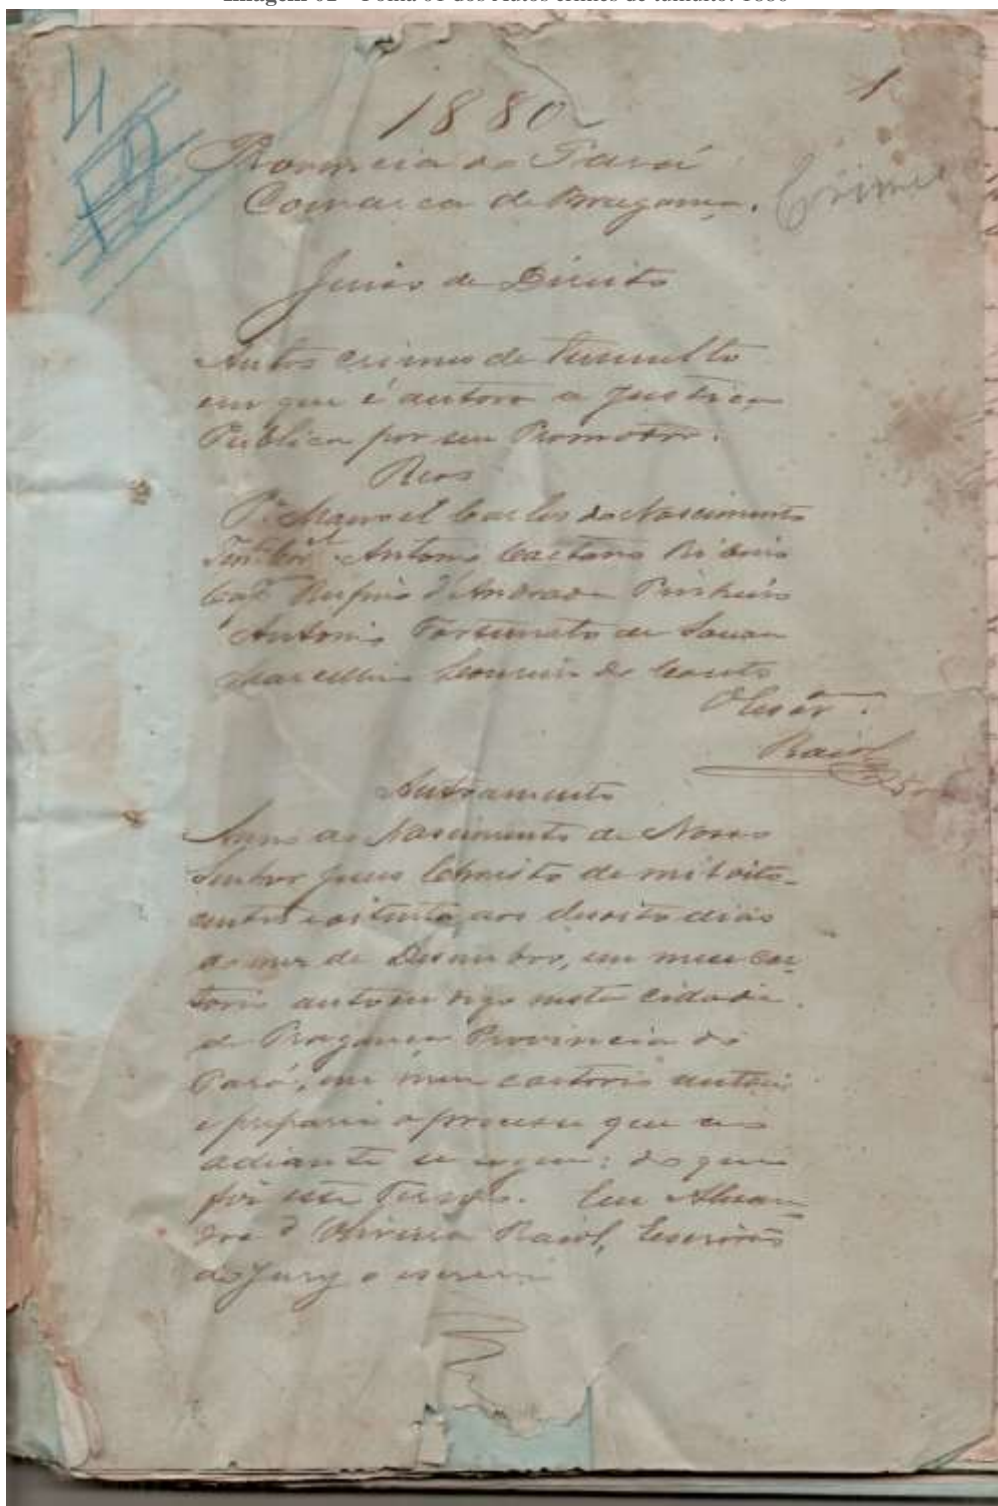 1
1880
Provincia do Pará
Comarca de Bragança.
Crime
Juizo de Direito
Autos crimes de tumulto
em que é autora a Justiça
Publica por seu Promotor.
Reos
Pe Manoel Carlos do Nascimento
Tente Corel Antonio Caetano Ribeiro
Capm Rufino d'Andrade Pinheiro
Antonio Fortunato de Sousa
Marcellino do Couto
O Escrm
Raiol
Autoamento
Anno do Nascimento de Nosso
Senhor Jesus Christo de mil oito-
centos e oitenta, aos desoito dias
do mez de Desembro, em meu car-
torio autoei digo nesta cidade
de Bragança Provincia do
Pará, em meu cartorio autoei
e preparei o processo que ao
adiante se segue: do que
fiz este Termo. Eu
d'Oliveira Raiol, Escrivão
do Jury o escrevi